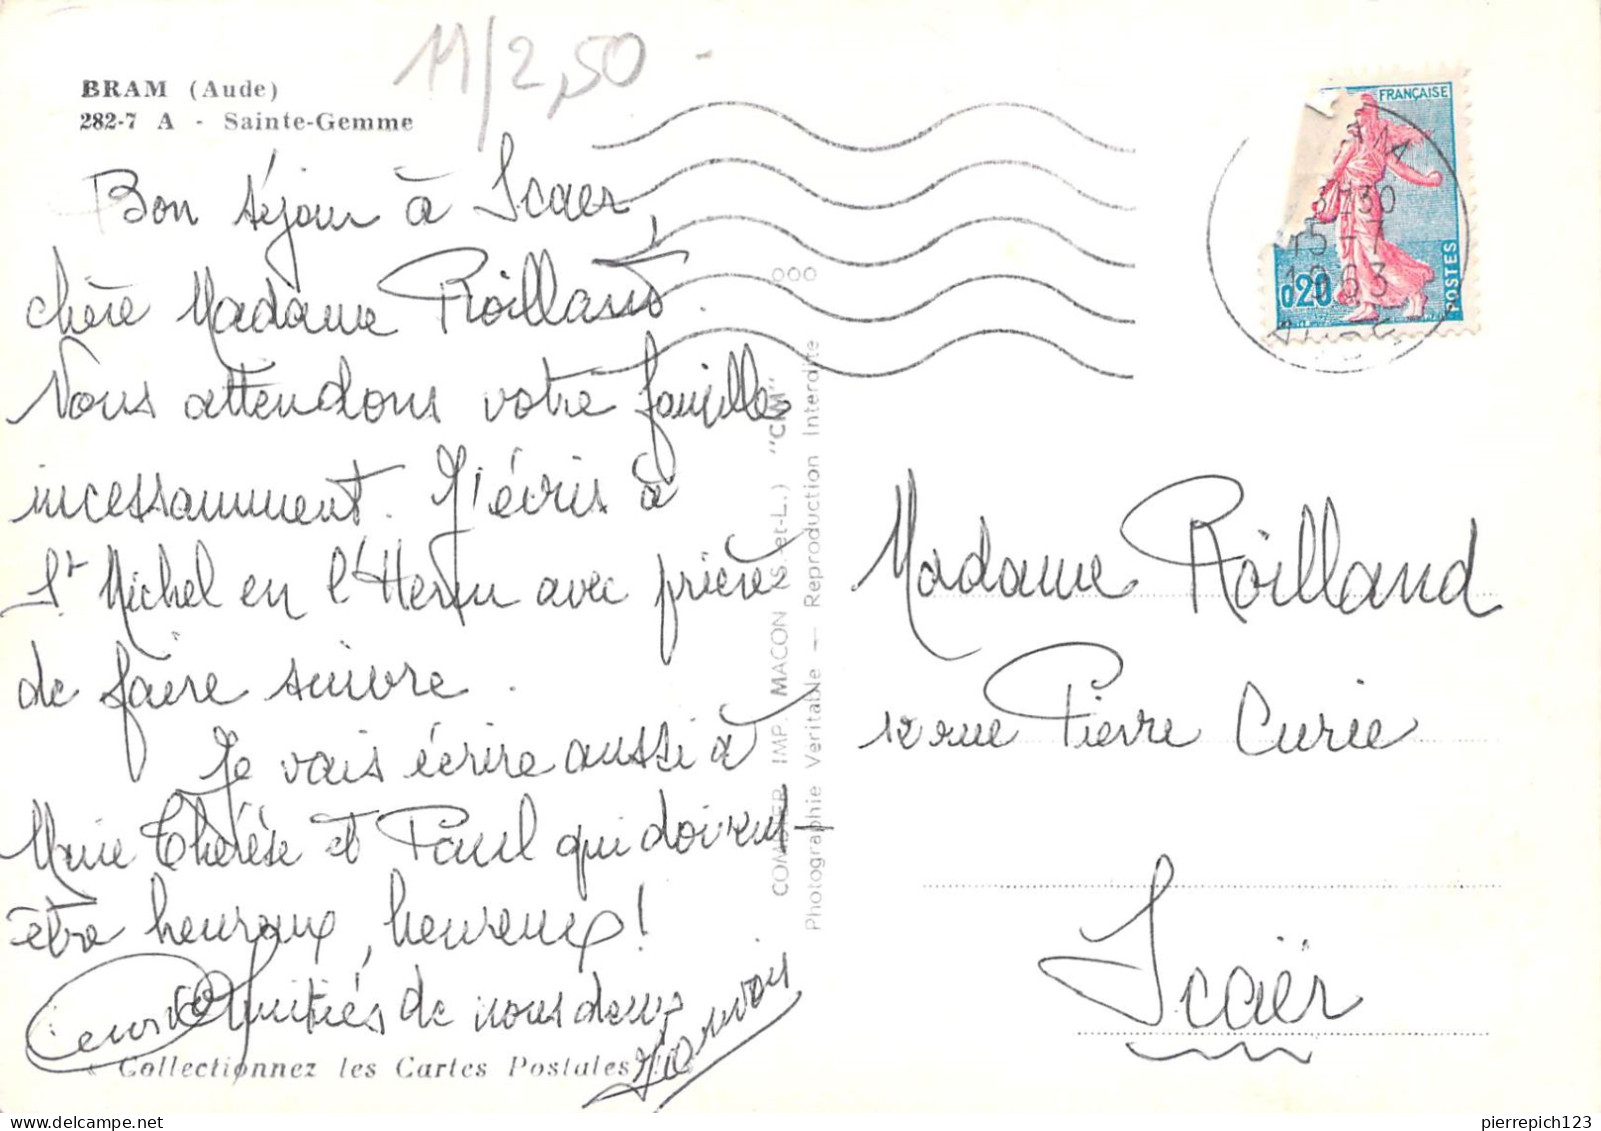 11/2,50
BRAM (Aude)
282-7 A - Sainte-Gemme
Bon séjour à Scaer,
chère Madame Roilland.
Nous attendons votre famille
incessamment. J'écris à
St Michel en l'Herm avec prière
de faire suivre.
Je vais écrire aussi à
Marie Thérèse et Paul qui doivent
être heureux, heureux!
Amitiés de nous deux
« Collectionnez les Cartes Postales
COMBIER IMP. MACON (S.-et-L.) "CIM"
Photographie Véritable — Reproduction Interdite
FRANÇAISE
3H30
15-7
1963
0,20
POSTES
Madame Roilland
12 rue Pierre Curie
Scaër
pierrepich123